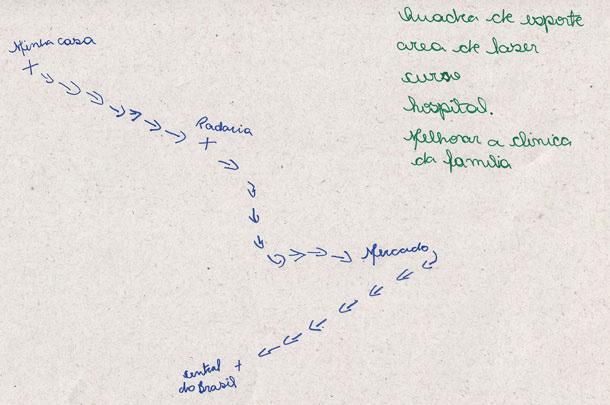 Quadra de esporte
area de lazer
curso
hospital.
Melhorar a clinica
da familia
Minha casa
Padaria
Mercado
Central
do Brasil